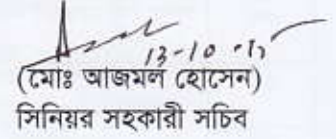 13-10-13
(মোঃ আজমল হোসেন)
সিনিয়র সহকারী সচিব